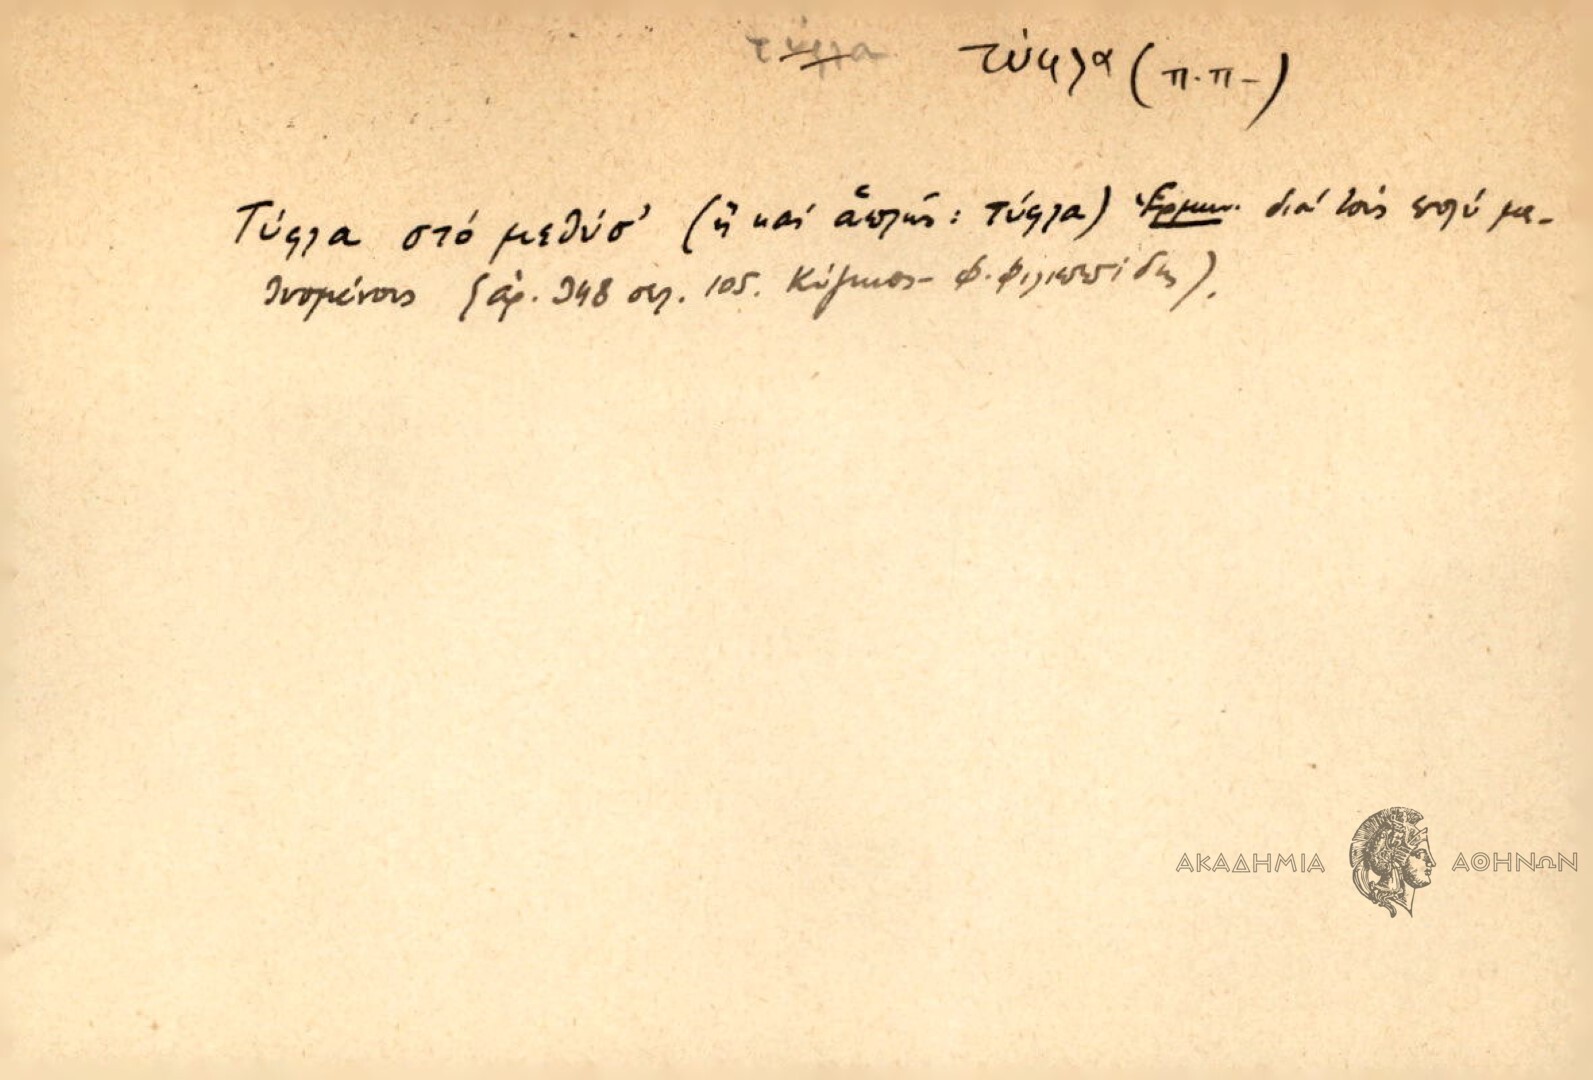 τύφλα τύφλα (π.π-)
Τύφλα στό μεθύσ' (ἤ καί ἁπλῶς: τύφλα) Ἑρμην. διά τούς πολύ με-
θυσμένους (ἀρ. 948 σελ. 105. Κύζικος - Φ. Φιλιππίδης).
ΑΚΑΔΗΜΙΑ ΑΘΗΝΩΝ